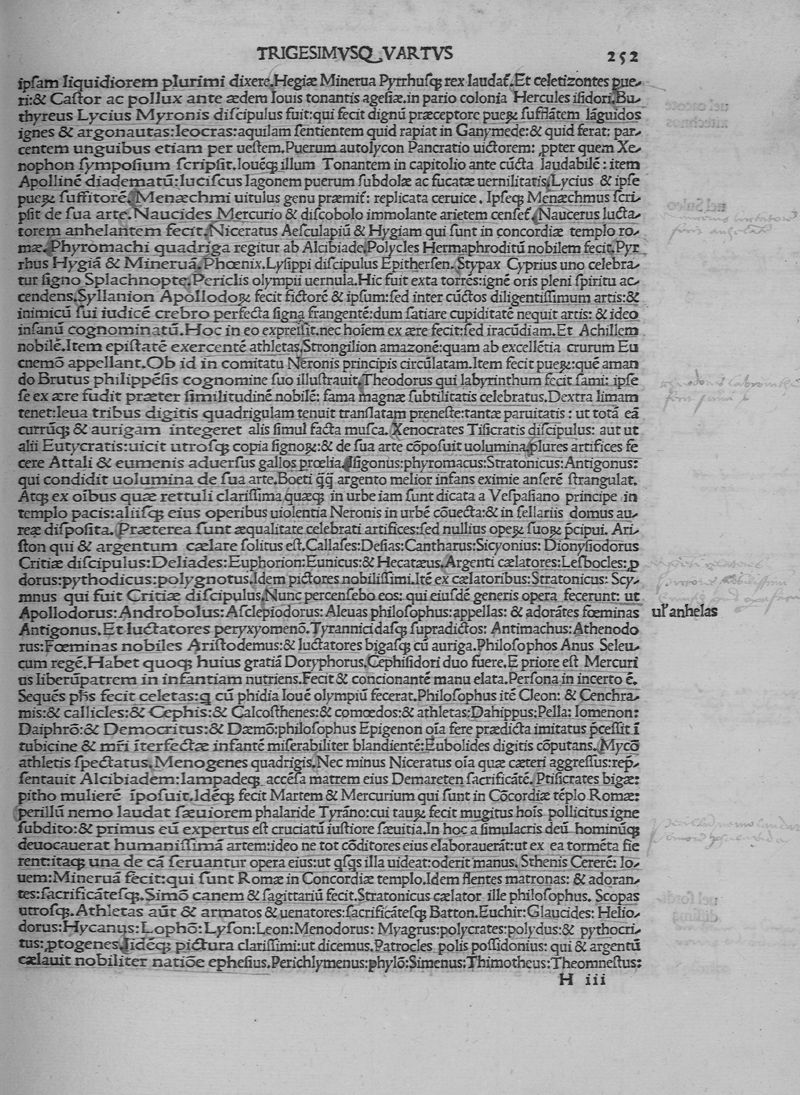 TRIGESIMVSQ VARTVS 252
ipſam liquidiorem plurimi dixere.Hegiæ Minerua Pyrrhuſqꝫ rex laudaſ.Et celetizontes pue⸗
ri:& Caſtor ac pollux ante ædem Iouis tonantis ageſiæ.in pario colonia Hercules iſidori.Bu⸗
thyreus Lycius Myronis diſcipulus fuit:qui fecit dignū præceptore pueꝝ ſufflātem lāguidos
ignes & argonautas:leocras:aquilam ſentientem quid rapiat in Ganymede:& quid ferat: par⸗
centem unguibus etiam per ueſtem.Puerum autolycon Pancratio uictorem: ꝓpter quem Xe⸗
nophon ſympoſium ſcripſit.Iouēqꝫ illum Tonantem in capitolio ante cūcta laudabilē: item
Apollinē diadematū:luciſcus lagonem puerum ſubdolæ ac fucatæ uernilitatis.Lycius & ipſe
pueꝝ ſuffitorē.Menæchmi uitulus genu præmiſ: replicata ceruice. Ipſeqꝫ Menæchmus ſcri⸗
pſit de ſua arte.Naucides Mercurio & diſcobolo immolante arietem cenſeſ.Naucerus lucta⸗
torem anhelantem fecit.Niceratus Aeſculapiū & Hygiam qui ſunt in concordiæ templo ro⸗
mæ.Phyromachi quadriga regitur ab Alcibiade.Polycles Hermaphroditū nobilem fecit.Pyr
rhus Hygiā & Mineruā.Phœnix.Lyſippi diſcipulus Epitherſen. Stypax Cyprius uno celebra⸗
tur ſigno Splachnopte.Periclis olympii uernula.Hic fuit exta torrēs:ignē oris pleni ſpiritu ac⸗
cendens.Syllanion Apollodoꝝ fecit fictorē & ipſum:ſed inter cūctos diligentiſſimum artis:&
inimicū ſui iudicē crebro perfecta ſigna frangentē:dum ſatiare cupiditatē nequit artis: & ideo
inſanū cognominatū.Hoc in eo expreſſit.nec hoīem ex ære fecit:ſed iracūdiam.Et Achillem
nobilē.Item epiſtatē exercentē athletas.Strongilion amazonē:quam ab excellētia crurum Eu
cnemō appellant.Ob id in comitatu Neronis principis circūlatam.Item fecit pueꝝ:quē aman
do Brutus philippēſis cognomine ſuo illuſtrauit.Theodorus qui labyrinthum fecit ſami: ipſe
ſe ex ære fudit præter ſimilitudinē nobilē: fama magnæ ſubtilitatis celebratus.Dextra limam
tenet:leua tribus digitis quadrigulam tenuit tranſlatam preneſte:tantæ paruitatis: ut totā eā
currūqꝫ & aurigam integeret alis ſimul facta muſca.Xenocrates Tiſicratis diſcipulus: aut ut
alii Eutycratis:uicit utroſqꝫ copia ſignoꝝ:& de ſua arte cōpoſuit uolumina.plures artifices fe
cere Attali & eumenis aduerſus gallos prœlia.Iſigonus:phyromacus:Stratonicus:Antigonus:
qui condidit uolumina de ſua arte.Boeti q̄q̄ argento melior infans eximie anſerē ſtrangulat.
Atqꝫ ex oībus quæ rettuli clariſſima quæqꝫ in urbe iam ſunt dicata a Veſpaſiano principe in
templo pacis:aliiſqꝫ eius operibus uiolentia Neronis in urbē cōuecta:& in ſellariis domus au⸗
reæ diſpoſita. Præterea ſunt æqualitate celebrati artifices:ſed nullius opeꝝ ſuoꝝ p̄cipui. Ari⸗
ſton qui & argentum cælare ſolitus eſt.Callaſes:Deſias:Cantharus:Sicyonius: Dionyſiodorus
Critiæ diſcipulus:Deliades:Euphorion:Eunicus:& Hecatæus.Argenti cælatores:Leſbocles:p
dorus:pythodicus:polygnotus.Idem pictores nobiliſſimi.Itē ex cælatoribus:Stratonicus: Scy⸗
mnus qui fuit Critiæ diſcipulus.Nunc percenſebo eos: qui eiuſdē generis opera fecerunt: ut
Apollodorus:Androbolus:Aſclepiodorus:Aleuas philoſophus:appellas: & adorātes fœminas
ul' anhelas
Antigonus.Et luctatores peryxyomenō.Tyrannicidaſqꝫ ſupradictos: Antimachus:Athenodo
rus:Fœminas nobiles Ariſtodemus:& luctatores bigaſqꝫ cū auriga.Philoſophos Anus Seleu⸗
cum regē.Habet quoqꝫ huius gratiā Doryphorus.Cephiſidori duo fuere.E priore eſt Mercuri
us liberūpatrem in infantiam nutriens.Fecit & concionantē manu elata.Perſona in incerto ē.
Sequēs phs fecit celetas:q cū phidia Iouē olympiū fecerat.Philoſophus itē Cleon: & Cenchra⸗
mis:& callicles:& Cephis:& Calcoſthenes:& comœdos:& athletas:Dahippus:Pella: Iomenon:
Daiphrō:& Democritus:& Dæmō:philoſophus Epigenon oīa fere prædicta imitatus p̄ceſſit ī
tubicine & mr̄i īterfectæ infantē miſerabiliter blandientē:Eubolides digitis cōputans. Mycō
athletis ſpectatus.Menogenes quadrigis.Nec minus Niceratus oīa quæ cæteri aggreſſus:rep⸗
ſentauit Alcibiadem:lampadeqꝫ accēſa matrem eius Demareten ſacrificātē. Ptiſicrates bigæ:
pitho mulierē īpoſuit.Idēqꝫ fecit Martem & Mercurium qui ſunt in Cōcordiæ tēplo Romæ:
perillū nemo laudat ſæuiorem phalaride Tyrāno:cui tauꝝ fecit mugitus hoīs pollicitus igne
ſubdito:& primus eū expertus eſt cruciatū iuſtiore ſæuitia.In hoc a ſimulacris deū hominūqꝫ
deuocauerat humaniſſimā artem:ideo ne tot cōditores eius elaborauerāt:ut ex ea tormēta fie
rent:itaqꝫ una de cā ſeruantur opera eius:ut qſqs illa uideat:oderit manus.Sthenis Cererē: Io⸗
uem:Mineruā fecit:qui ſunt Romæ in Concordiæ templo.Idem flentes matronas: & adoran⸗
tes:ſacrificāteſqꝫ.Simō canem & ſagittariū fecit.Stratonicus cælator ille philoſophus. Scopas
utroſqꝫ.Athletas aūt & armatos & uenatores:ſacrificāteſqꝫ Batton.Euchir:Glaucides: Helio⸗
dorus:Hycanus:Lophō:Lyſon:Leon:Menodorus: Myagrus:polycrates:polydus:& pythocri⸗
tus:ꝓtogenes.Iidēqꝫ pictura clariſſimi:ut dicemus.Patrocles polis poſſidonius: qui & argentū
cælauit nobiliter natiōe epheſius.Perichlymenus:phylō:Simenus:Thimotheus:Theomneſtus:
H iii